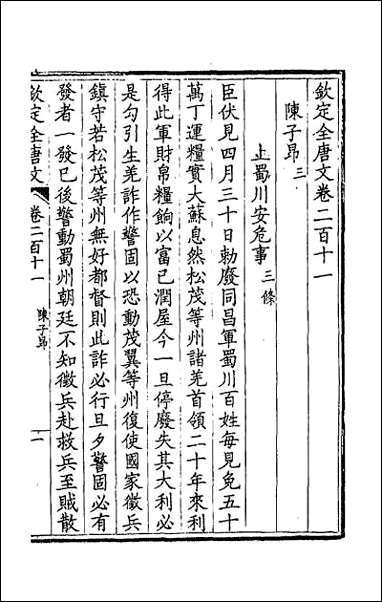 欽定全唐文卷二百十一
陳子昂三
上蜀川安危事三條
臣伏見四月三十日勅廢同昌軍蜀川百姓每見免五十
萬丁運糧實大蘇息然松茂等州諸羌首領二十年來利
得此軍財帛糧餉以富已潤屋今一旦停廢失其大利必
是勾引生羌詐作警固以恐動茂翼等州復使國家徵兵
鎮守若松茂等州無好都督則此詐必行旦夕警固必有
發者一發已後警動蜀州朝廷不知徵兵赴救兵至賊散
欽定全唐文 卷二百十一 陳子昂 一